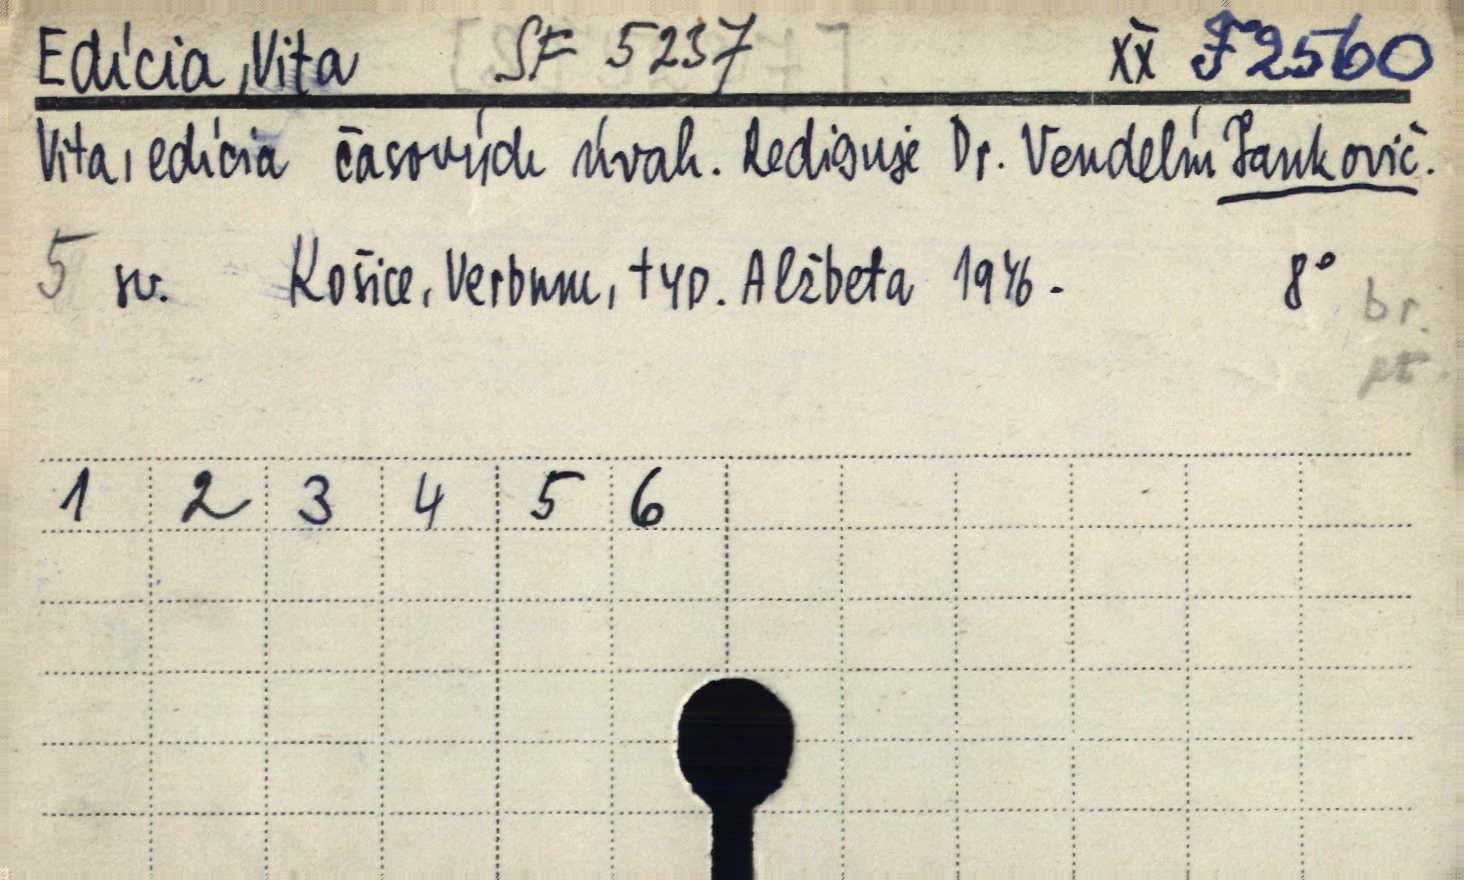 Edícia, Vita SF 5237 XX F 2560
Vita, edícia časových úvah. Rediguje Dr. Vendelín Jankovič.
5 sv. Košice, Verbum, typ. Alžbeta 1946. 8°
br.
1 2 3 4 5 6